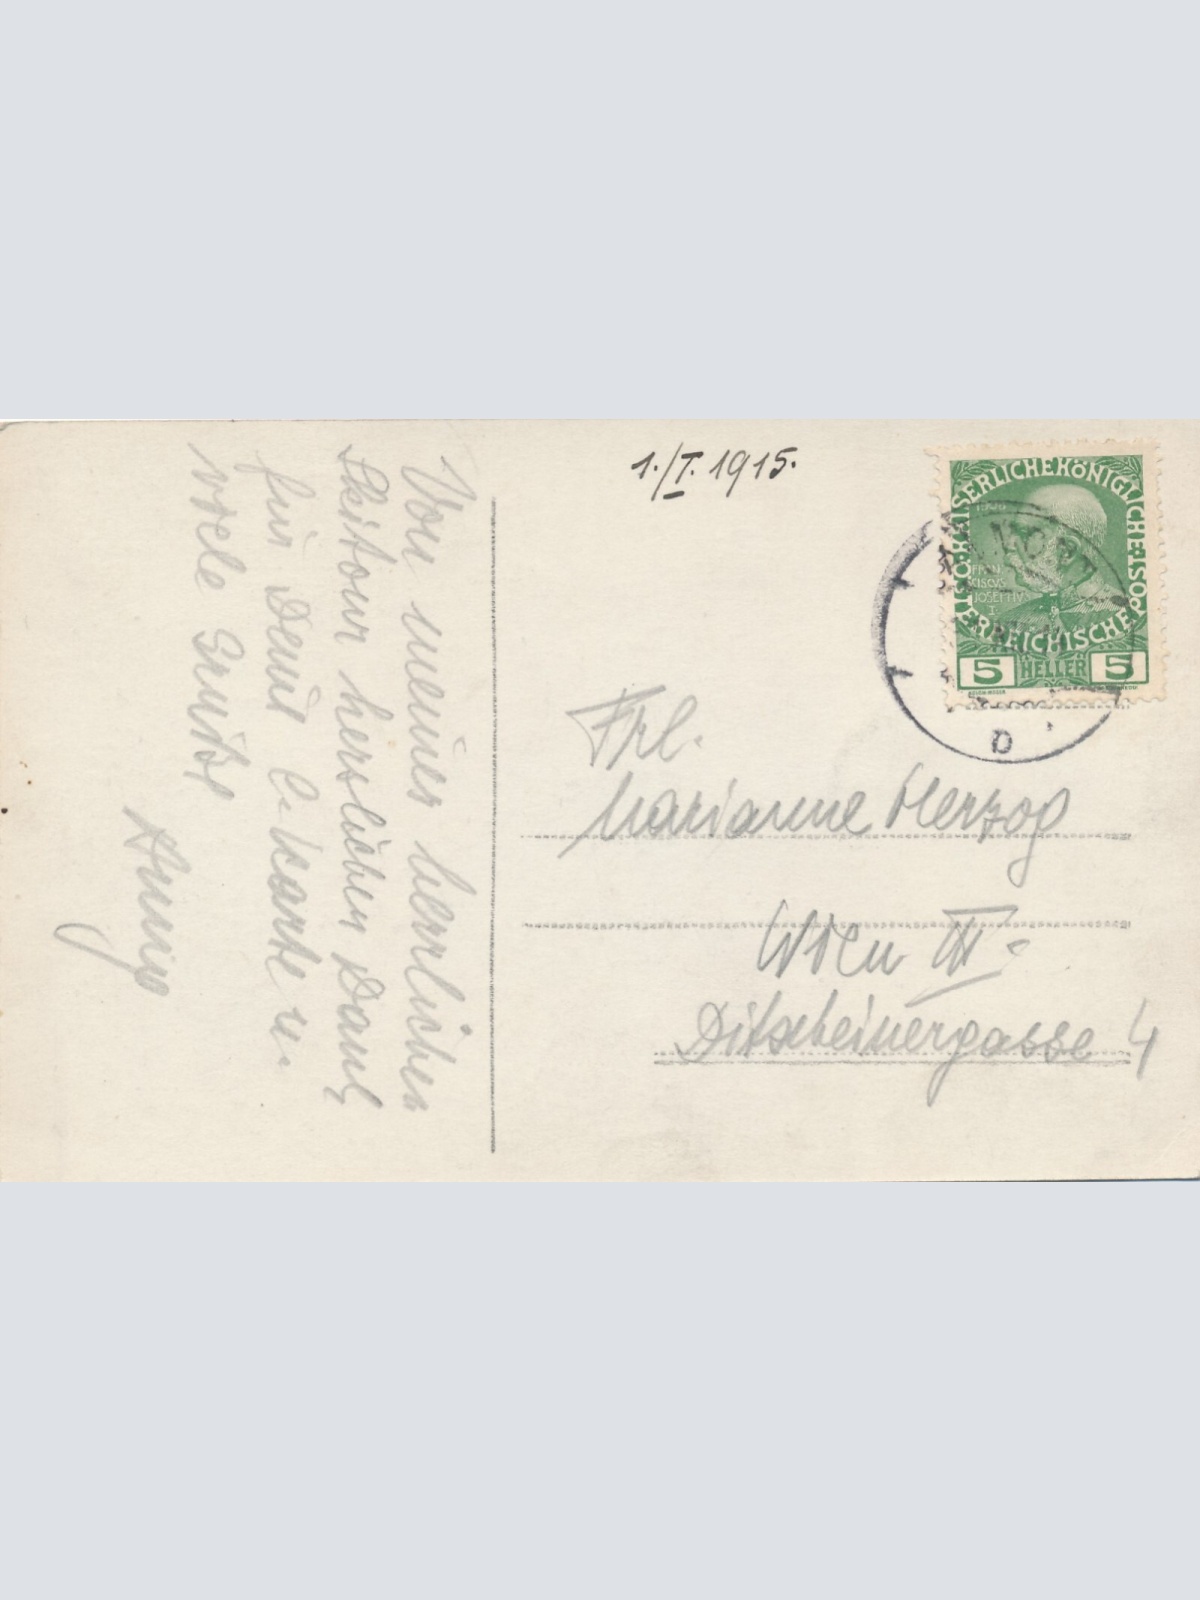 1./I. 1915.
Von meiner herrlichen
Skitour herzlichen Dank
für Deine l. Karte u.
viele Grüße
KAISERLICHE KÖNIGLICHE ÖSTERREICHISCHE POST
1908
FRAN
CISCUS
JOSEPHUS
I
5 HELLER 5
D
Frl.
Marianne Herzog
Wien III.
Ditscheinergasse 4